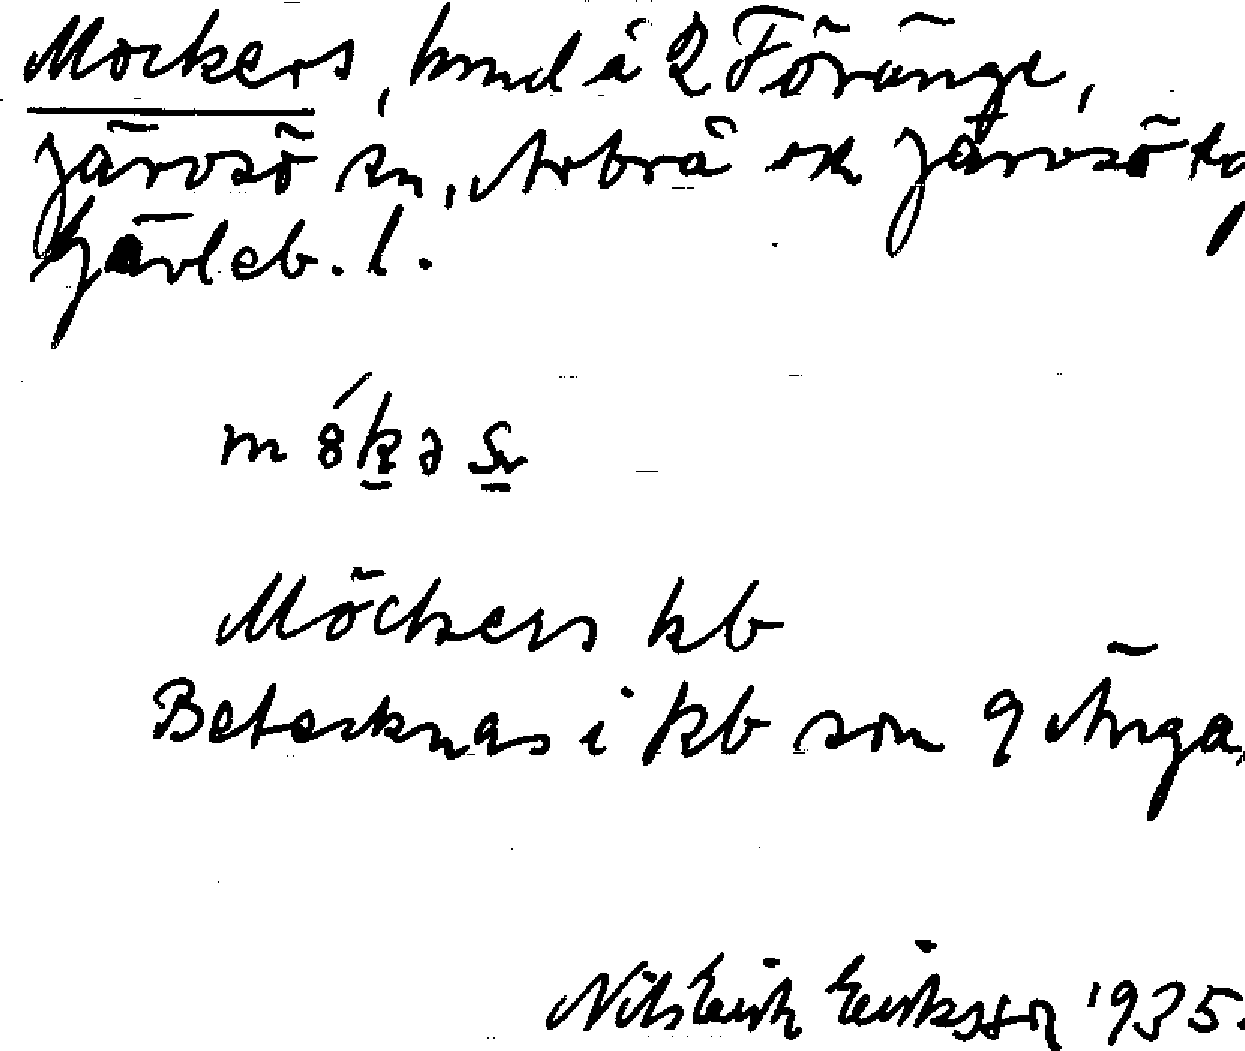 Mockers, hmd å 2 Föränge,
Järvsö sn, Arbrå och Järvsö tg
Gävleb. l.
Möckers kb
Betecknas i kb som 9 Änga.
Nils Erik Eriksson 1935.